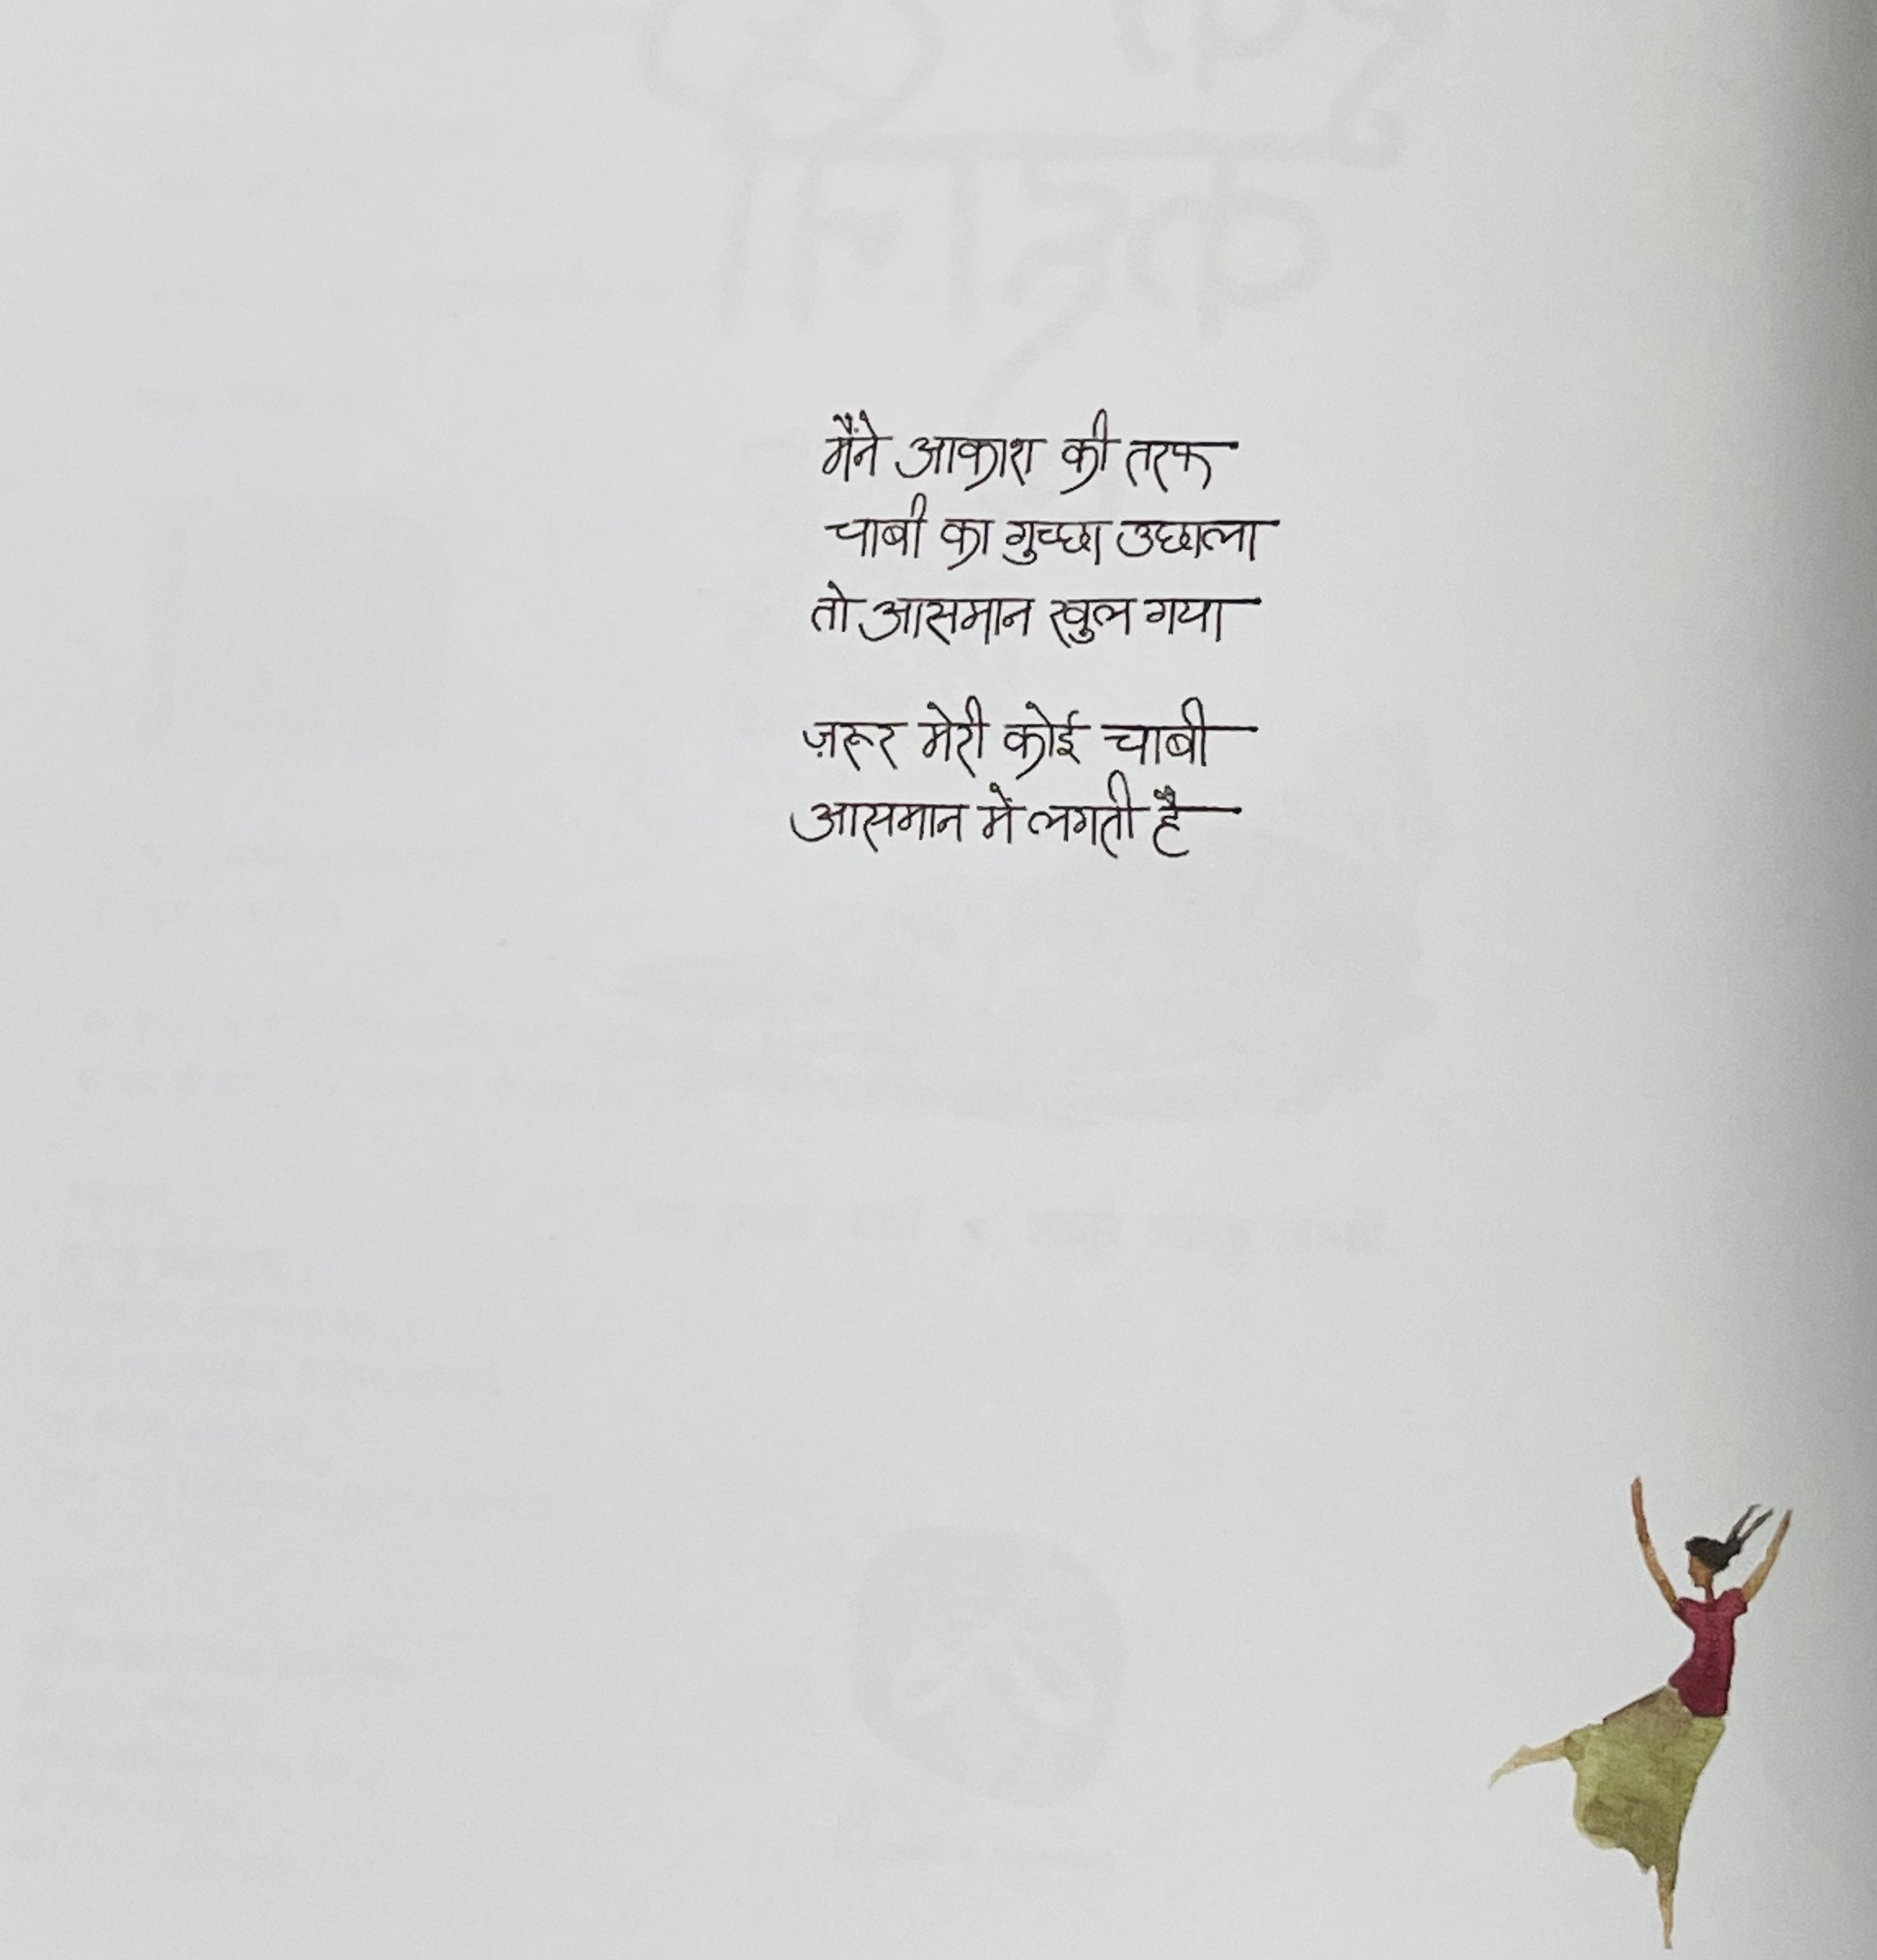 मैंने आकाश की तरफ
चाबी का गुच्छा उछाला
तो आसमान खुल गया
ज़रूर मेरी कोई चाबी
आसमान में लगती है